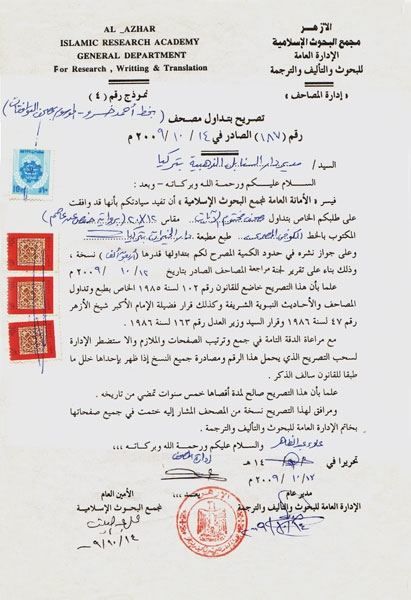 AL _AZHAR
ISLAMIC RESEARCH ACADEMY
GENERAL DEPARTMENT
For Research , Writting & Translation
الأزهـر
مجمع البحوث الإسلامية
الإدارة العامة
للبحوث والتأليف والترجمة
« إدارة المصاحف »
نموذج رقم ( ٤ )
تصريح بتداول مصحف
رقم ( ١٨٧ ) الصادر في ١٤ / ١٠ / ٢٠٠٩ م
السيد / مدير دار السنابل الذهبية بتركيا
السلام عليكم ورحمة الله وبركاته - وبعد :
فيسر « الأمانة العامة لمجمع البحوث الإسلامية » أن تفيد سيادتكم بأنها قد وافقت
على طلبكم الخاص بتداول مصحف مقاس ٢٠X١٤
المكتوب بالخط طبع مطبعة
وعلى جواز نشره في حدود الكمية المصرح لكم بتداولها قدرها ( ) نسخة ،
وذلك بناء على تقرير لجنة مراجعة المصاحف الصادر بتاريخ ١٢ / ١٠ / ٢٠٠٩ م
علما بأن هذا التصريح خاضع للقانون رقم ١٠٢ لسنة ١٩٨٥ الخاص بطبع وتداول
المصاحف والأحاديث النبوية الشريفة وكذلك قرار فضيلة الإمام الأكبر شيخ الأزهر
رقم ٤٧ لسنة ١٩٨٦ وقرار السيد وزير العدل رقم ١٦٣ لسنة ١٩٨٦ .
مع مراعاة الدقة التامة في جمع وترتيب الصفحات والملازم وألا ستضطر الإدارة
لسحب التصريح الذي يحمل هذا الرقم ومصادرة جميع النسخ إذا ظهر بإحداها خلل ما
طبقا للقانون سالف الذكر .
علما بأن هذا التصريح صالح لمدة أقصاها خمس سنوات تمضي من تاريخه .
ومرافق لهذا التصريح نسخة من المصحف المشار إليه ختمت في جميع صفحاتها
بخاتم الإدارة العامة للبحوث والتأليف والترجمة .
والسلام عليكم ورحمة الله وبركاته ،،،
تحريرا في / / ١٤ هـ
١٢ / ١٠ / ٢٠٠٩ م
إدارة المصاحف
يعتمد ،،،
مدير عام
الإدارة العامة للبحوث والتأليف والترجمة
الأمين العام
لمجمع البحوث الإسلامية